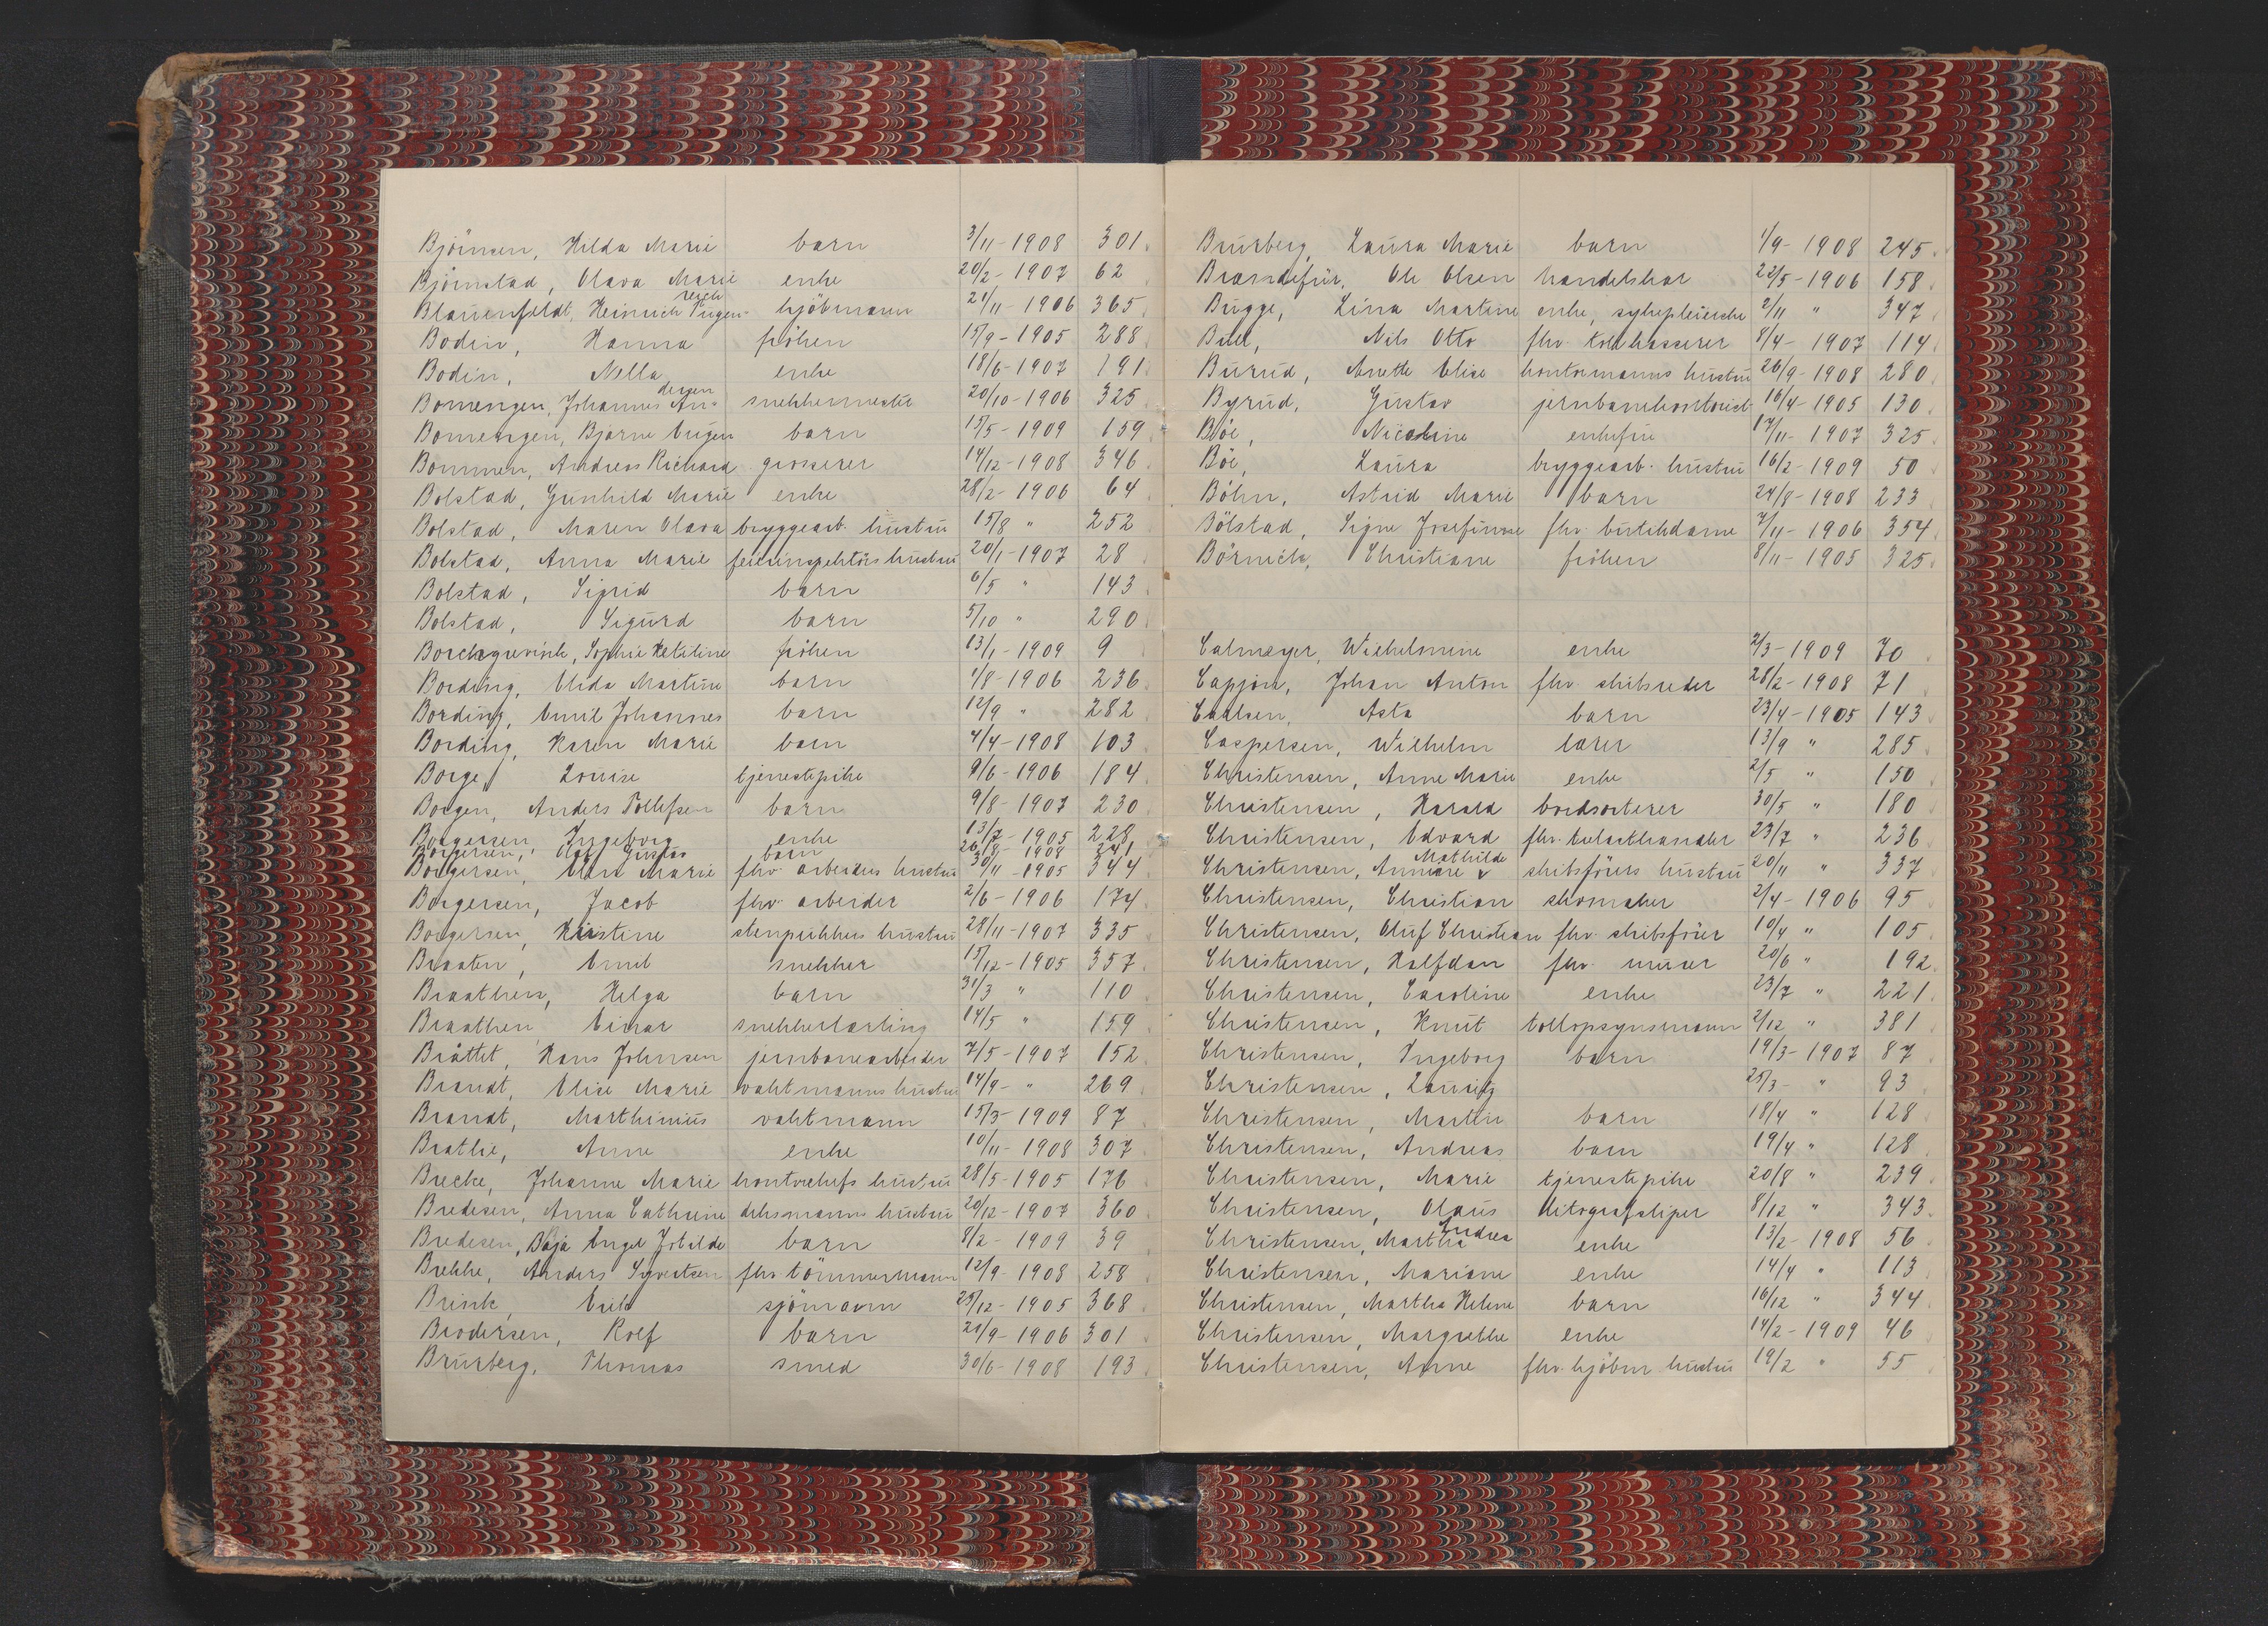 Björnsen, Hilda Marie barn 3/11-1908 301.
Björnstad, Olava Marie enke 20/2-1907 62
Blauenfeldt, Heinrich Eugen kjöbmann 21/11-1906 365.
Bodin, Hanna fröken 15/9-1905 288.
Bodin, Nella enke 18/6-1907 191.
Bomengen, Johannes An=dersen snekkermester 20/10-1906 325
Bomengen, Bjarne Eugen barn 15/5-1909 159
Bommen, Andreas Richard grosserer 14/12-1908 346.
Bolstad, Gunhild Marie enke 28/2-1906 64
Bolstad, Maren Olava bryggearb. hustru 15/8 " 252
Bolstad, Anna Marie feierinspektörs hustru 20/1-1907 28
Bolstad, Sigrid barn 6/5 " 143
Bolstad, Sigurd barn 5/10 " 290.
Borchgrevink, Sophie fröken 13/1-1909 9
Bording, Elida Martine barn 1/8-1906 236
Bording, Emil Johannes barn 12/9 " 282
Bording, Karen Marie barn 4/4-1908 103
Borge, Louise tjenestepike 9/6-1906 184
Borgen, Anders Tollefsen barn 9/8-1907 230
Borgersen, Ingeborg enke 13/7-1905 228
Borgersen, Olaf Gustav barn 26/8-1908 241
Borgersen, Marie fhv. arbeiders hustru 30/11-1905 344
Borgersen, Jacob fhv. arbeider 2/6-1906 174
Borgersen, Kristine stenpukkers hustru 28/11-1907 335
Braaten, Emil snekker 15/12-1905 357
Braathen, Helga barn 31/3 " 110
Braathen Einar snekkerlærling 14/5 " 159
Bråttet, Hans Johnsen jernbanearbeider 7/5-1907 152
Brandt, Elise Marie vaktmanns hustru 14/9- " 269
Brandt, Marthinius vaktmann 15/3-1909 87
Bratlie, Anne enke 10/11-1908 307
Brecke, Johanne Marie kontorchefs hustru 28/5-1905 176
Bredesen, Anna Cathrine deksmanns hustru 20/12-1907 360
Bredesen, Engel barn 8/2-1909 39
Brekke, Anders Syvertsen fhv tömmermann 12/9-1908 258
Brink, Erik sjömann 25/12-1905 368
Brodersen, Rolf barn 21/9-1906 301
Brurberg, Thomas smed 30/6-1908 193
Brurberg, Laura Marie barn 1/9-1908 245
Ole Olsen handelskar 22/5-1906 158
Bugge, Lina Martine enke, sykepleierske 2/11 " 347
Bull, Nils Otto fhv. tollkasserer 8/4-1907 114
Burud, Anette Elise kontormanns hustru 26/9-1908 280
Byrud, Gustav jernbanekontorist 16/4-1905 130
Böe, Nicoline enkefru 17/11-1907 325
Böe, Laura bryggearb. hustru 16/2-1909 50
Böhn, Astrid Marie barn 24/8-1908 233
Bölstad, Signe Josefinne fhv. butikdame 7/11-1906 354
Börnick, Christiane fröken 8/11-1905 325
Calmeyer, Wilhelmine enke 2/3-1909 70
Capjon, Johan Anton fhv. skibsreder 28/2-1908 71
Carlsen, Asta barn 23/4-1905 143
Caspersen, Wilhelm lærer 13/9 " 285
Christensen, Anne Marie enke 2/5 " 150
Christensen, Harald bordsorterer 30/5 " 180
Christensen, Edvard fhv. trelasthandler 23/7 " 236
Christensen, Annine Mathilde skibsförers hustru 20/11 " 337
Christensen, Christian skomaker 2/4-1906 95
Christensen, Oluf Christian fhv. skibsförer 10/4 " 105
Christensen, Halfdan fhv. murer 20/6 " 192
Christensen, Caroline enke 23/7 " 221
Christensen, Knut tollopsynsmann 2/12 " 381
Christensen, Ingeborg barn 19/3-1907 87
Christensen, Lauritz 25/3- " 93
Christensen, Martin barn 18/4 " 128
Christensen, Andreas barn 19/4 " 128
Christensen, Marie tjenestepike 20/8 " 239
Christensen, Olaus litografsliper 8/12 " 343
Christensen, Martha Andrea enke 13/2-1908 56
Christensen, Mariane enke 14/4 " 113
Christensen, Martha Helene barn 16/12 " 344
Christensen, Margrethe enke 14/2-1909 46
Christensen, Anne fhv. kjöbm. hustru 19/2 " 55